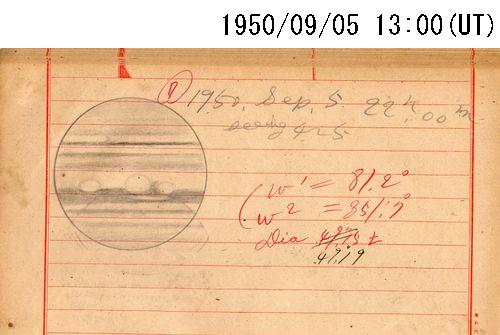 1950/09/05 13:00(UT)
1950. Sep. 5. 22h 00m
seeing 4~5
w1 = 81.2°
w2 = 85.7°
Dia
47.19